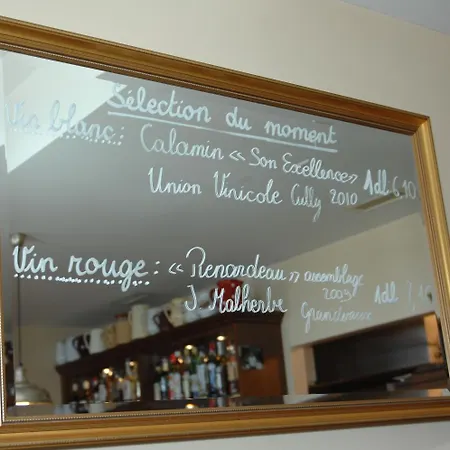 Sélection du moment
Vin blanc : Calamin « Son Excellence »
Union Vinicole Cully 2010 1dl: 6.10
Vin rouge : « Renardeau » assemblage
2009
J. Malherbe 1dl
Grandvaux